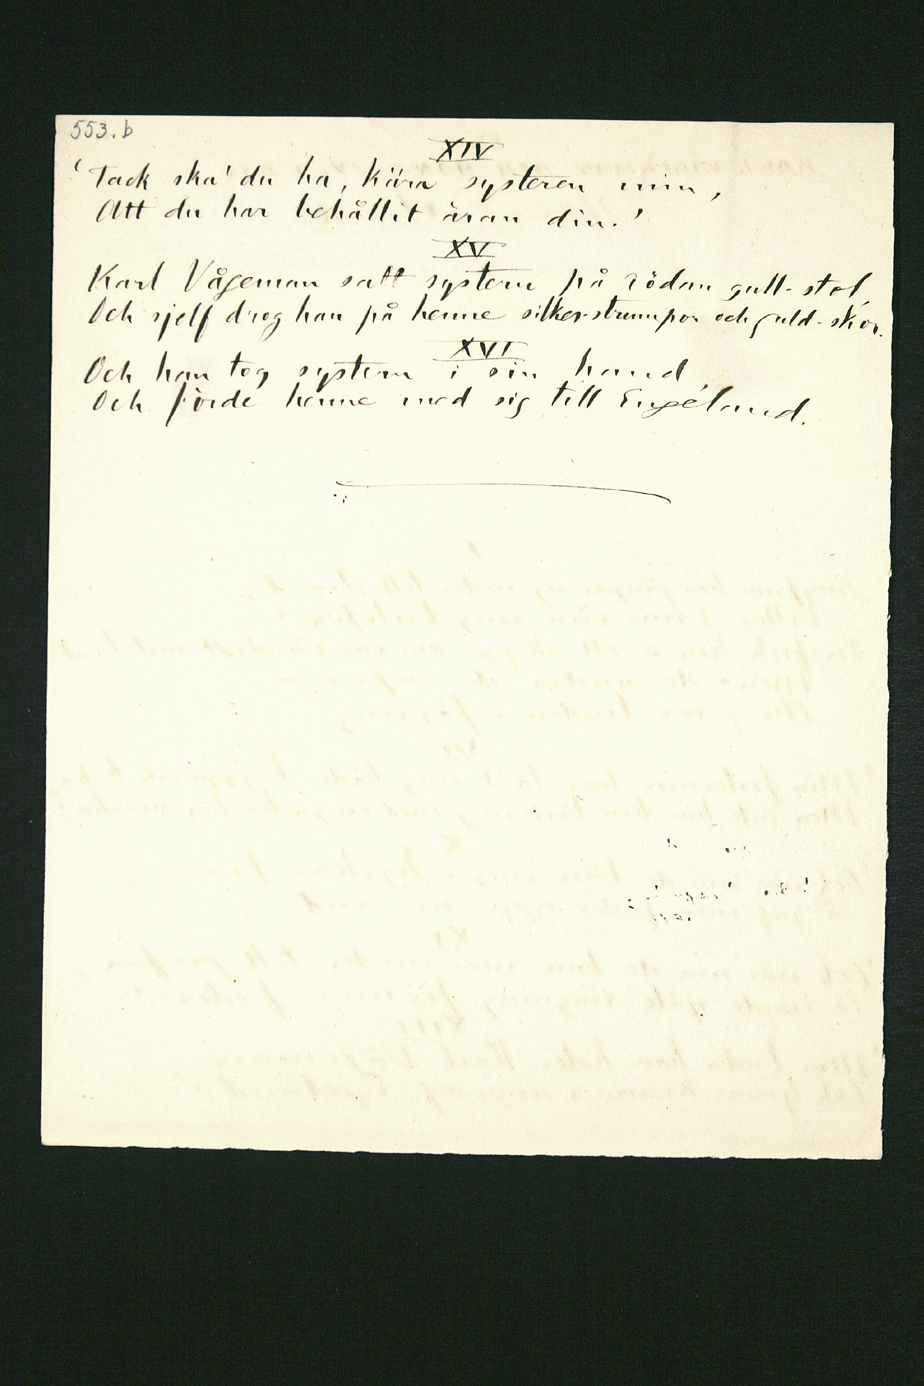 553.b
XIV
'Tack ska' du ha, kära systeren min,
Att du har behållit äran din.'
XV
Karl Vågeman satt system på rödan gull-stol,
Och sjelf drog han på henne silkes-strumpor och guld-skor.
XVI
Och han tog system i sin hand
Och förde henne med sig till Engéland.